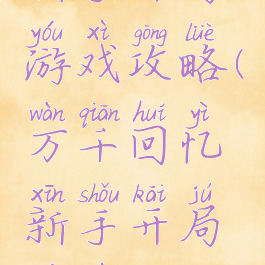 yóu xì gōng lüè
游戏攻略(
wàn qiān huí yì
万千回忆
xīn shǒu kāi jú
新手开局